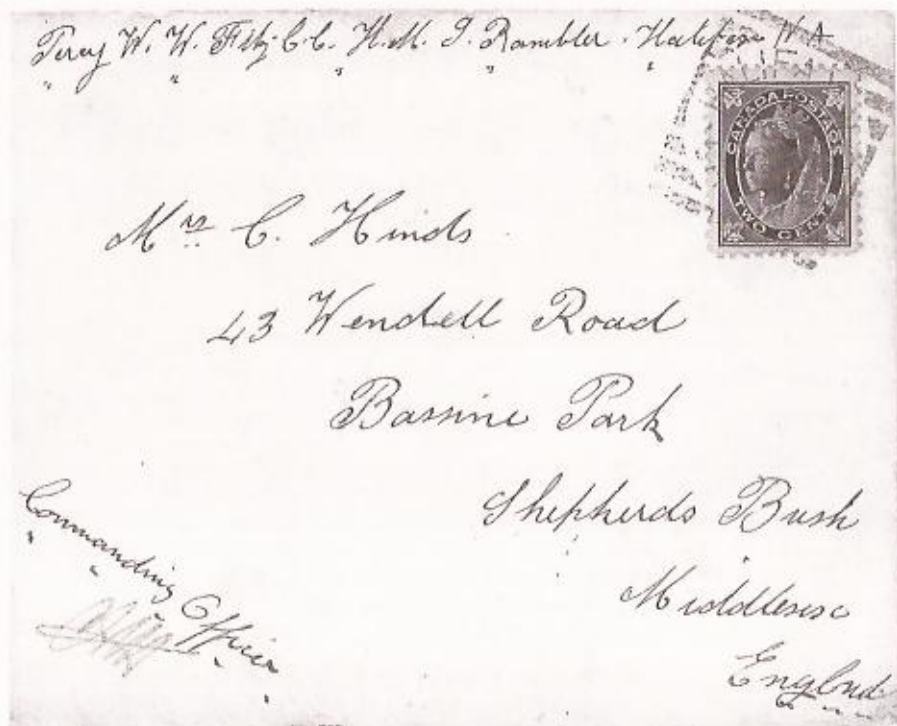 Percy W. W. H.M.S. Rambler. Halifax N A
CANADA POSTAGE
TWO CENTS
Mrs C. Hinds
43 Wendell Road
Bassine Park
Shepherds Bush
Middlesex
England
Commanding Officer